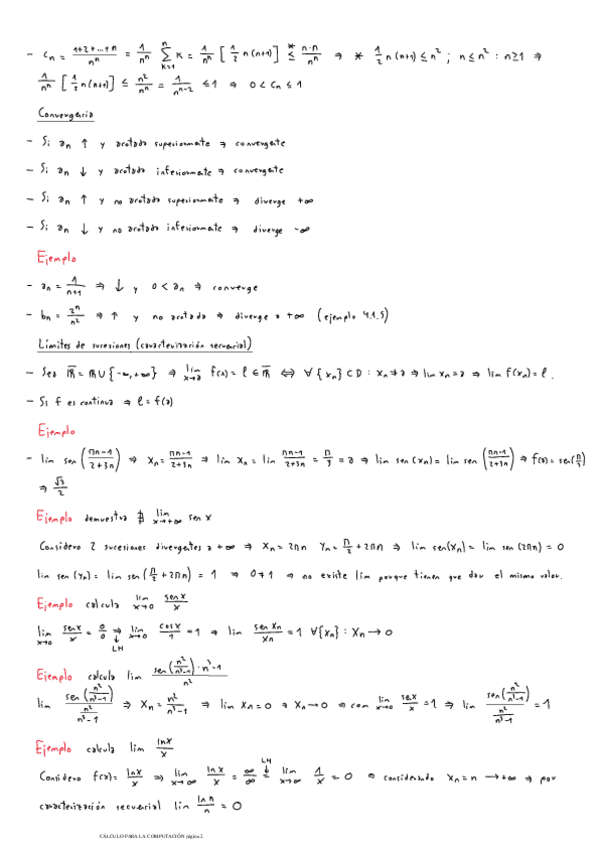 - Cn = (1+2+...+n)/n^n = 1/n^n ∑_{k=1}^{n} k = 1/n^n [1/2 n(n+1)] ≤* n·n/n^n ⇒ * 1/2 n(n+1) ≤ n² ; n ≤ n² : n≥1 ⇒
1/n^n [1/2 n(n+1)] ≤ n²/n^n = 1/n^(n-2) ≤ 1 ⇒ 0 < Cn ≤ 1
Convergencia
- Si an ↑ y acotada superiormente ⇒ convergente
- Si an ↓ y acotada inferiormente ⇒ convergente
- Si an ↑ y no acotada superiormente ⇒ diverge +∞
- Si an ↓ y no acotada inferiormente ⇒ diverge -∞
Ejemplo
- an = 1/(n+1) ⇒ ↓ y 0 < an ⇒ converge
- bn = 2^n/n² ⇒ ↑ y no acotada ⇒ diverge a +∞ (ejemplo 4.1.5)
Límites de sucesiones (caracterización secuencial)
- Sea R̄ = R ∪ {-∞, +∞} ⇒ lim x→a f(x) = l ∈ R̄ ⇔ ∀{xn} ⊂ D : xn ≠ a ⇒ lim xn = a ⇒ lim f(xn) = l.
- Si f es continua ⇒ l = f(a)
Ejemplo
- lim sen((πn-1)/(2+3n)) ⇒ xn = (πn-1)/(2+3n) ⇒ lim xn = lim (πn-1)/(2+3n) = π/3 = a ⇒ lim sen(xn) = lim sen((πn-1)/(2+3n)) ⇒ f(a) = sen(π/3)
⇒ √3/2
Ejemplo demuestra ∄ lim x→+∞ sen x
Considero 2 sucesiones divergentes a +∞ ⇒ xn = 2πn yn = π/2 + 2πn ⇒ lim sen(xn) = lim sen(2πn) = 0
lim sen(yn) = lim sen(π/2 + 2πn) = 1 ⇒ 0≠1 ⇒ no existe lím porque tienen que dar el mismo valor.
Ejemplo calcula lim x→0 sen x/x
lim x→0 sen x/x = 0/0 ⇒ LH lim x→0 cos x/1 = 1 ⇒ lim sen xn/xn = 1 ∀{xn} : xn → 0
Ejemplo calcula lim sen(n²/(n³-1))·n³-1 / n²
lim sen(n²/(n³-1)) / (n²/(n³-1)) ⇒ xn = n²/(n³-1) ⇒ lim xn = 0 ⇒ xn → 0 ⇒ com lim x→0 sen x/x = 1 ⇒ lim sen(n²/(n³-1)) / (n²/(n³-1)) = 1
Ejemplo calcula lim ln x/x
Considero f(x) = ln x/x ⇒ lim x→∞ ln x/x = ∞/∞ = LH lim x→∞ 1/x = 0 ⇒ considerando xn = n → +∞ ⇒ por
caracterización secuencial lim ln n/n = 0
CÁLCULO PARA LA COMPUTACIÓN página 2